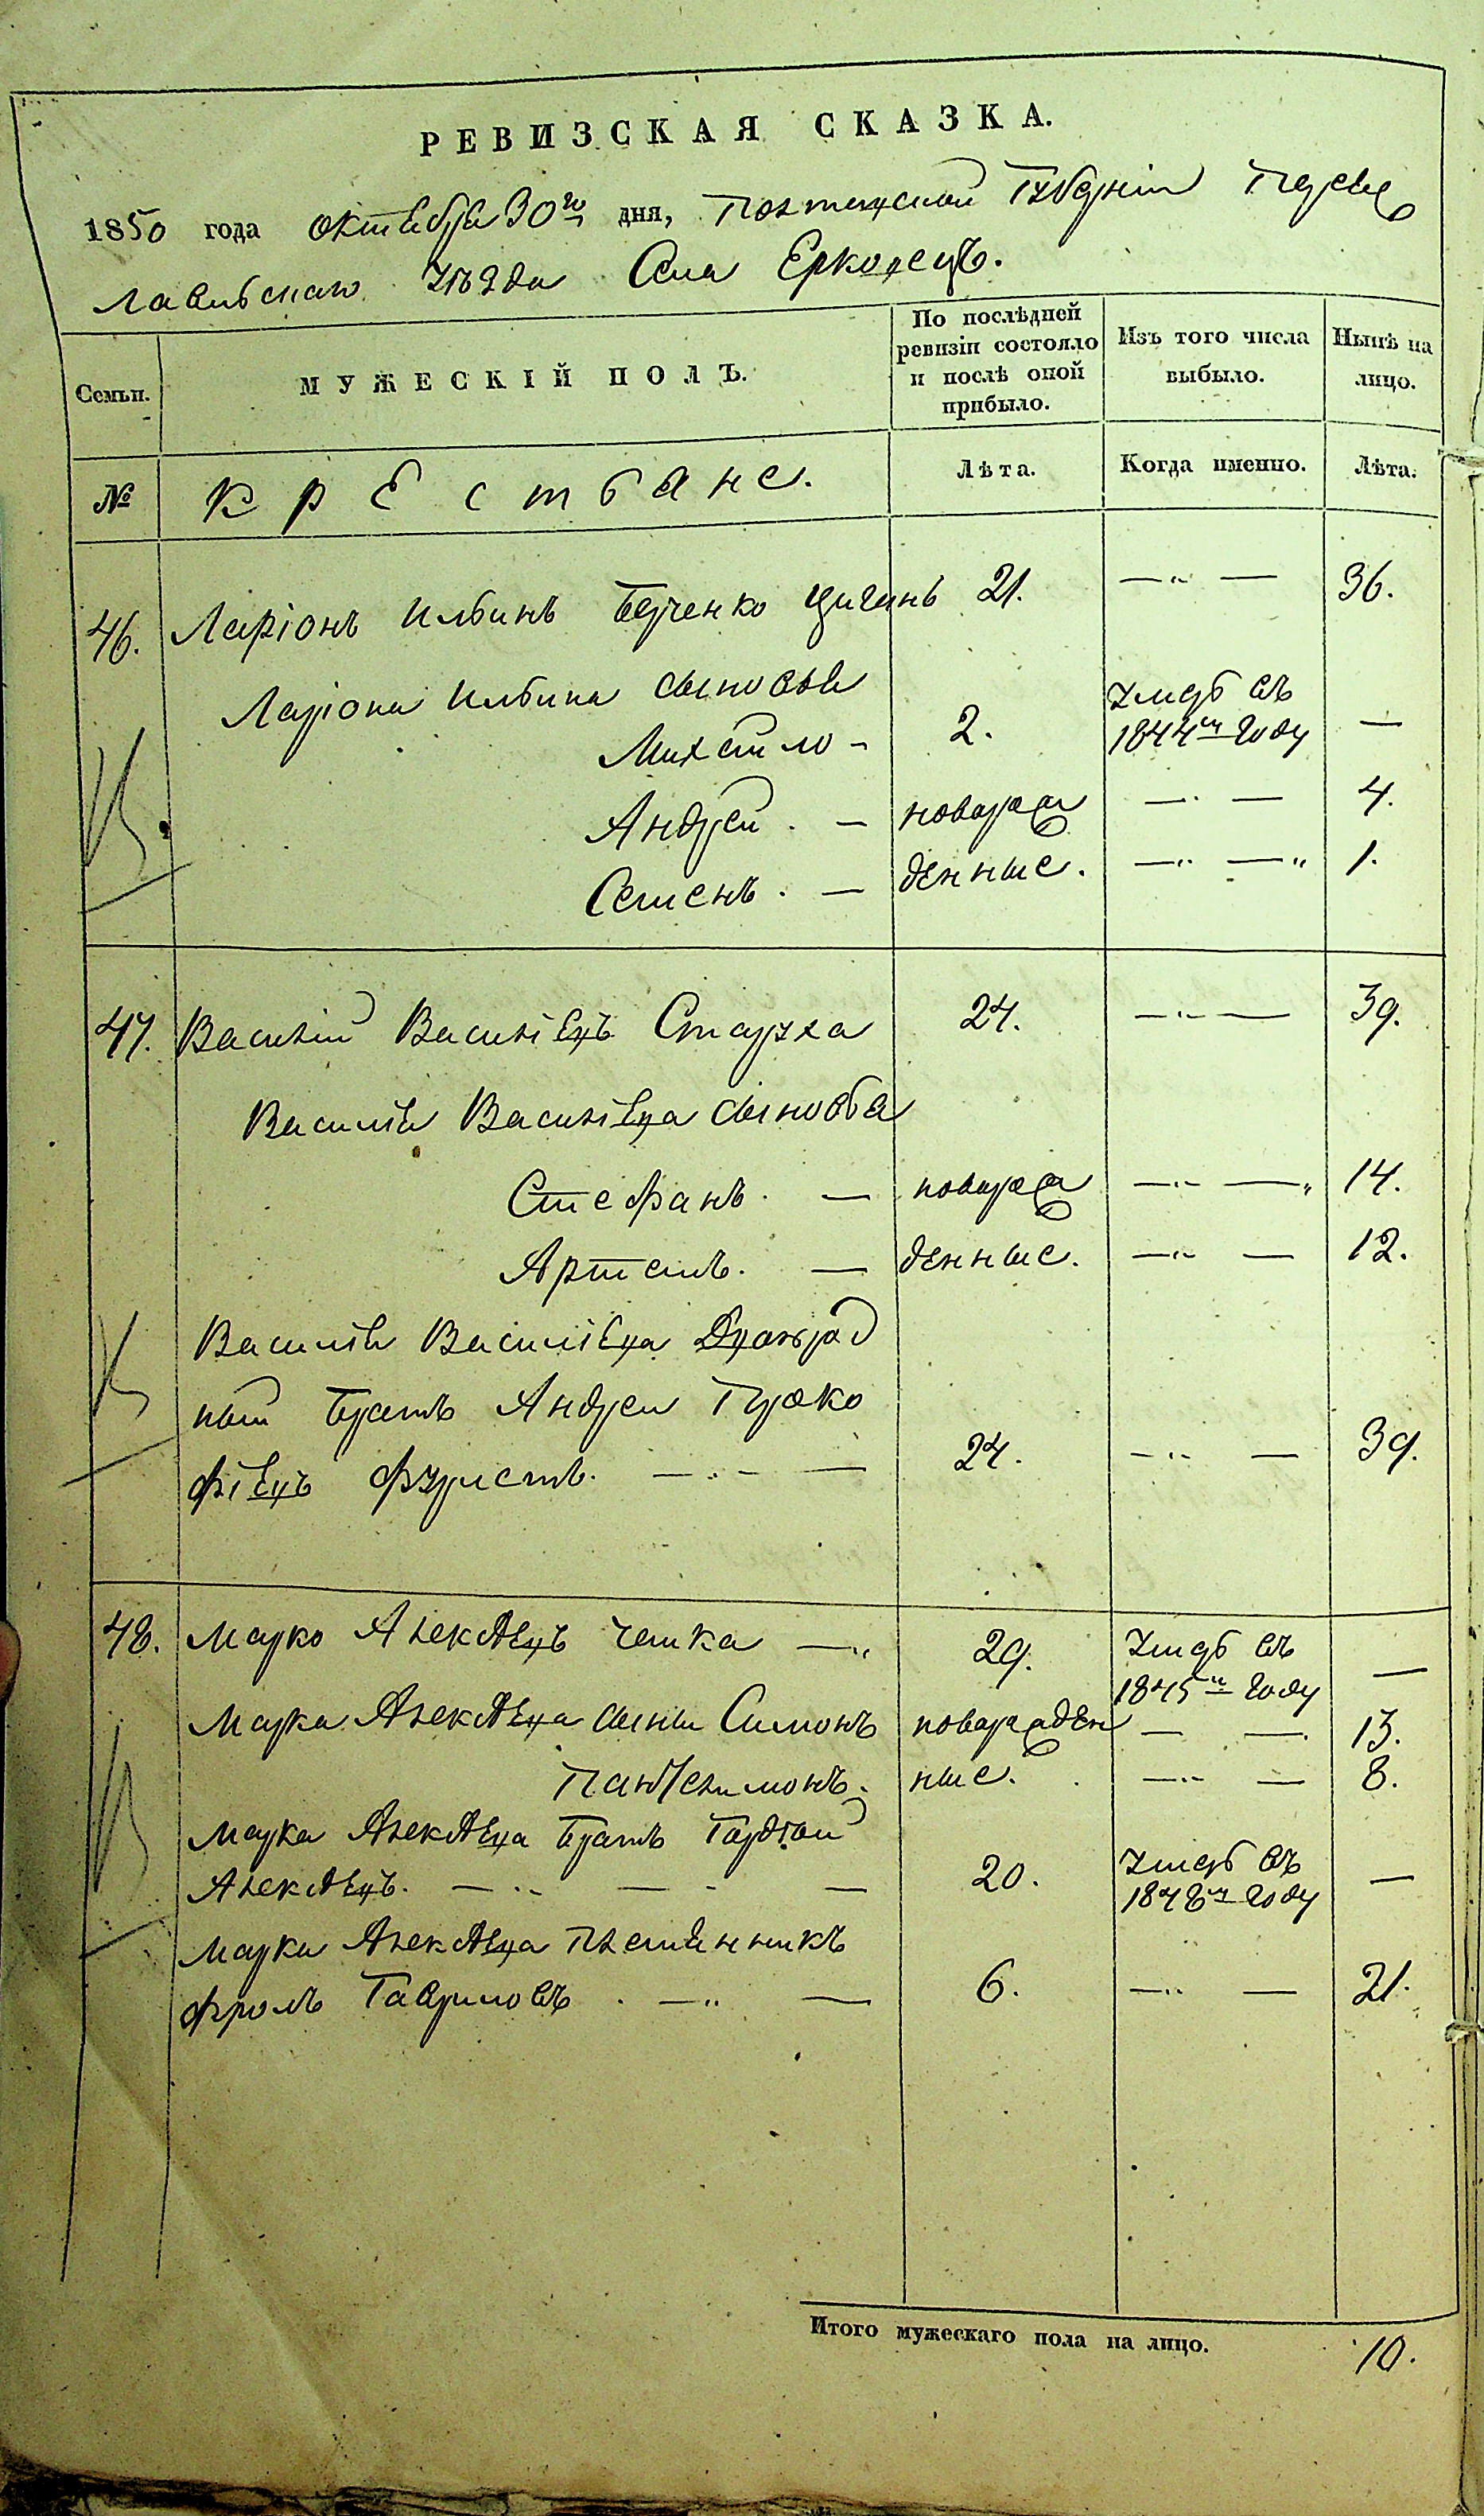 РЕВИЗСКАЯ СКАЗКА.
1850 года октября 30го дня, Полтавской Губерніи Переяс
лавского уѣзда Села Ерковецъ.
Семьи.
МУЖЕСКІЙ ПОЛЪ.
По послѣдней ревизіи состояло и послѣ оной прибыло.
Изъ того числа выбыло.
Нынѣ на лицо.
№
Крестьяне.
Лѣта.
Когда именно.
Лѣта.
46. Ларіонъ Ильинъ Цыганъ 21. —„— 36.
Ларіона Ильина сыновья
Михайло - 2. умеръ въ 1844м году —
Андрей . — новорож — . — 4.
Семенъ . — денные. —„ —„ 1.
47. Василій Василіевъ Старуха 24. —„— 39.
Василія Василіева сыновья
Стефанъ . — новорож —„ —„ 14.
Артемъ. — денные. —„ — 12.
Василія Василіева Двоюрод
ный братъ Андрей Проко
фіевъ —„— — 24. —„ — 39.
48. Марко Алексѣевъ —„ 29. умеръ въ 1845м году —
Марка Алексѣева сыны Симонъ новорожден — —. 13.
Пантелимонъ. ные. —„ — 8.
Марка Алексѣева братъ Гордѣй
Алексѣевъ. —„ — - — 20. умеръ въ 1848м году —
Марка Алексѣева племянникъ
Фролъ Гавриловъ . —„ — 6. —„ — 21.
Итого мужескаго пола на лицо. 10.